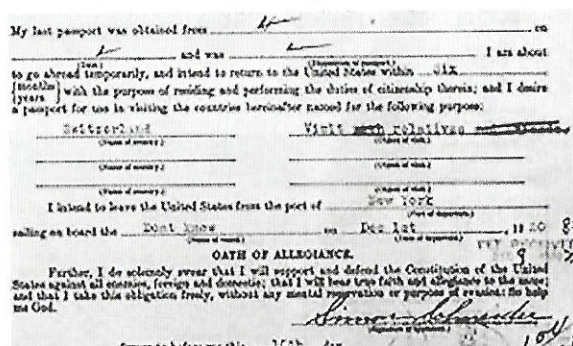 My last passport was obtained from on
(Date.) and was (Disposition of passport.) I am about
to go abroad temporarily, and intend to return to the United States within Six
{months
years} with the purpose of residing and performing the duties of citizenship therein; and I desire
a passport for use in visiting the countries hereinafter named for the following purpose:
Switzerland Visit relatives
(Name of country.) (Object of visit.)
(Name of country.) (Object of visit.)
(Name of country.) (Object of visit.)
I intend to leave the United States from the port of New York
(Port of departure.)
sailing on board the Dont know on Dec 1st, 1920
(Name of vessel.) (Date of departure.)
OATH OF ALLEGIANCE.
Further, I do solemnly swear that I will support and defend the Constitution of the United
States against all enemies, foreign and domestic; that I will bear true faith and allegiance to the same;
and that I take this obligation freely, without any mental reservation or purpose of evasion: So help
me God.
Simon
(Signature of applicant.)
Sworn to before me this day